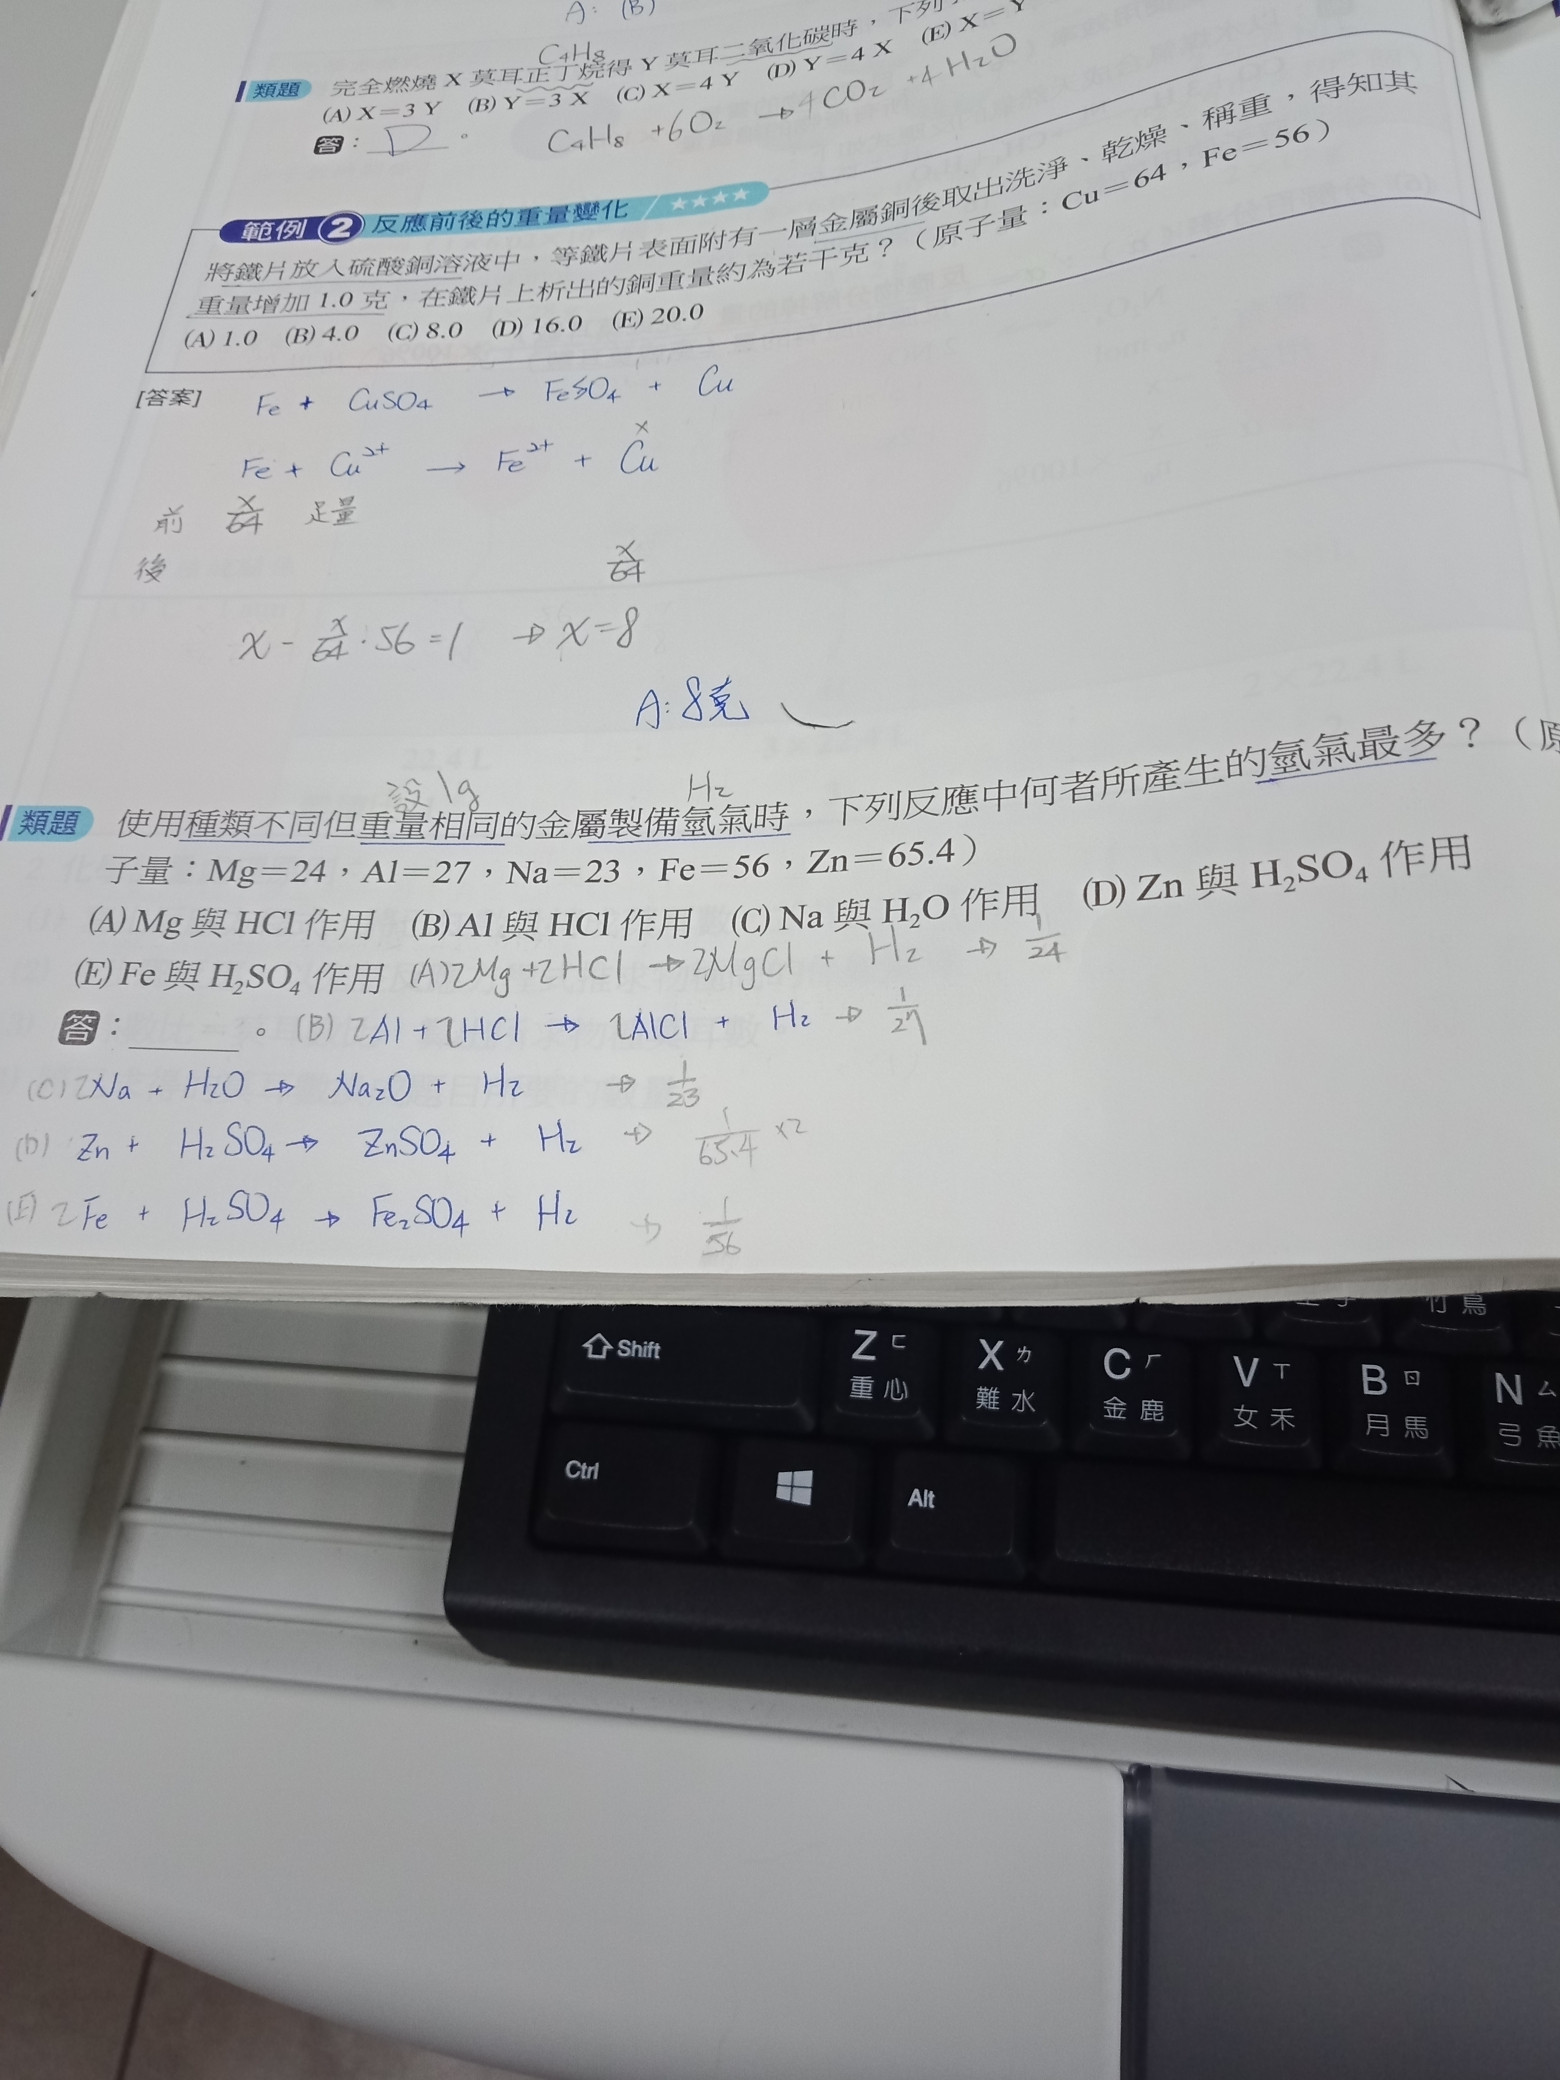 A: (B)
C₄H₈
類題 完全燃燒 X 莫耳正丁烷得 Y 莫耳二氧化碳時，下列
(A) X＝3 Y (B) Y＝3 X (C) X＝4 Y (D) Y＝4 X (E) X＝Y
答：D。 C₄H₈ +6O₂ → 4CO₂ +4H₂O
範例 2 反應前後的重量變化 ★★★★
將鐵片放入硫酸銅溶液中，等鐵片表面附有一層金屬銅後取出洗淨、乾燥、稱重，得知其
重量增加 1.0 克，在鐵片上析出的銅重量約為若干克？（原子量：Cu＝64，Fe＝56）
(A) 1.0 (B) 4.0 (C) 8.0 (D) 16.0 (E) 20.0
[答案] Fe + CuSO₄ → FeSO₄ + Cu
x
Fe + Cu²⁺ → Fe²⁺ + Cu
前 x/64 足量
後 x/64
x - x/64 · 56 = 1 → x = 8
A: 8克
設1g H₂
類題 使用種類不同但重量相同的金屬製備氫氣時，下列反應中何者所產生的氫氣最多？（原
子量：Mg＝24，Al＝27，Na＝23，Fe＝56，Zn＝65.4）
(A) Mg 與 HCl 作用 (B) Al 與 HCl 作用 (C) Na 與 H₂O 作用 (D) Zn 與 H₂SO₄ 作用
(E) Fe 與 H₂SO₄ 作用 (A) 2Mg +2HCl → 2MgCl + H₂ → 1/24
答：。 (B) 2Al + 2HCl → 2AlCl + H₂ → 1/27
(C) 2Na + H₂O → Na₂O + H₂ → 1/23
(D) Zn + H₂SO₄ → ZnSO₄ + H₂ → 1/65.4 ×2
(E) 2Fe + H₂SO₄ → Fe₂SO₄ + H₂ → 1/56
竹 鳥
Shift Z ㄈ X ㄌ C ㄏ V ㄒ B ㄖ N ㄙ
重 心 難 水 金 鹿 女 禾 月 馬 弓 魚
Ctrl Alt